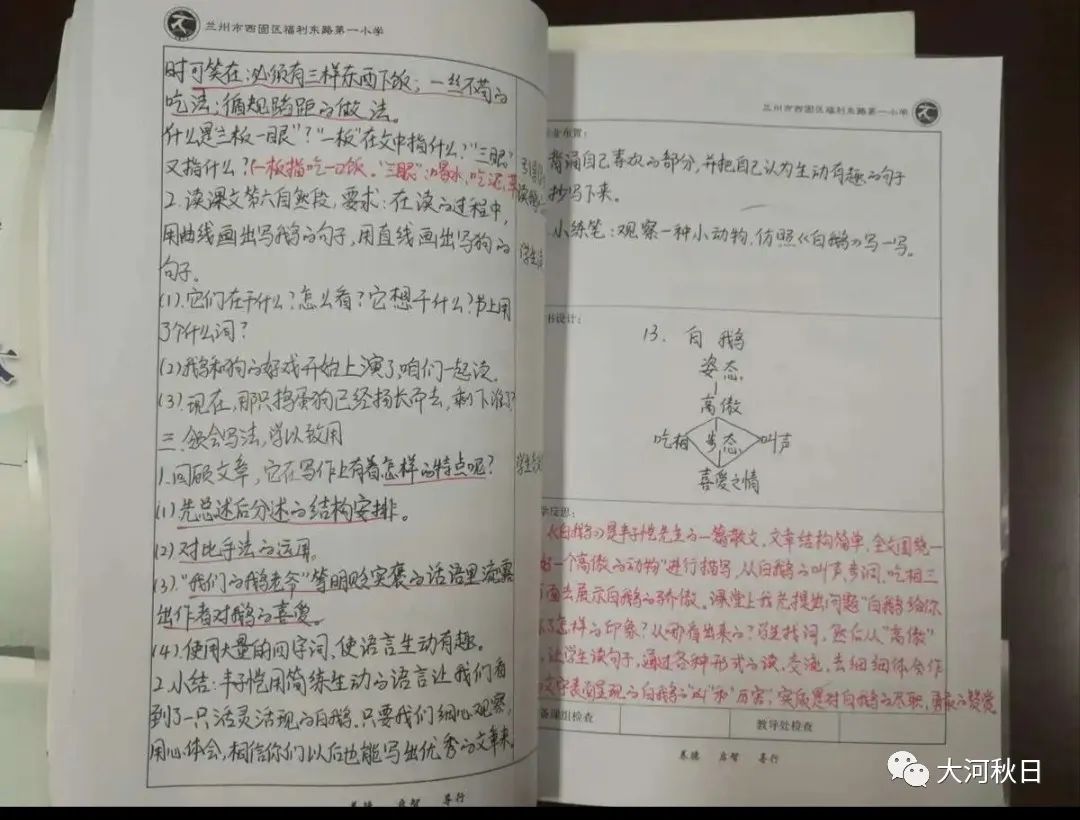 兰州市西固区福利东路第一小学
时可笑在:必须有三样东西下饭;一丝不苟的
吃法;循规蹈距的做法。
什么是三板一眼"?"一板"在文中指什么?"三眼"
又指什么?(一板指吃一口饭。"三眼":喝水,吃泥,草
2.读课文第六自然段,要求:在读的过程中,
用曲线画出写鹅的句子,用直线画出写狗的
句子。
学生
(1).它们在干什么?怎么看?它想干什么?书上用
了个什么词?
(2)鹅和狗的好戏开始上演了,咱们一起读。
(3).现在,那只捣蛋狗已经扬长而去,剩下谁了?
三.领会写法,学以致用
1.回顾文章,它在写作上有着怎样的特点呢?
学生
(1)先总述后分述的结构安排。
(2)对比手法的运用。
(3)."我们的鹅老爷"等明贬实褒的话语里流露
出作者对鹅的喜爱。
(4).使用大量的四字词,使语言生动有趣。
2.小结:丰子恺用简练生动的语言让我们看
到了一只活灵活现的白鹅.只要我们细心观察,
用心体会,相信你们以后也能写出优秀的文章来
养德 启智 导行
兰州市西固区福利东路第一小学
业布置:
背诵自己喜欢的部分,并把自己认为生动有趣的句子
抄写下来。
小练笔:观察一种小动物,仿照《白鹅》写一写。
书设计:
13. 白 鹅
姿态
高傲
吃相 步态 叫声
喜爱之情
学反思:
《白鹅》是丰子恺先生的一篇散文,文章结构简单,全文围绕一
一个高傲的动物"进行描写,从白鹅的叫声,步调,吃相三
面去展示白鹅的高傲。课堂上我先提出问题"白鹅给你
了怎样的印象?从哪看出来的?学生找词,然后从"高傲"
让学生读句子,通过各种形式的读,交流,去细细体会作
文字表面呈现的白鹅的"叫"和"厉害",实质是对白鹅的尽职,勇敢的赞赏
备课组检查 教导处检查
养德 启智 导行
大河秋日